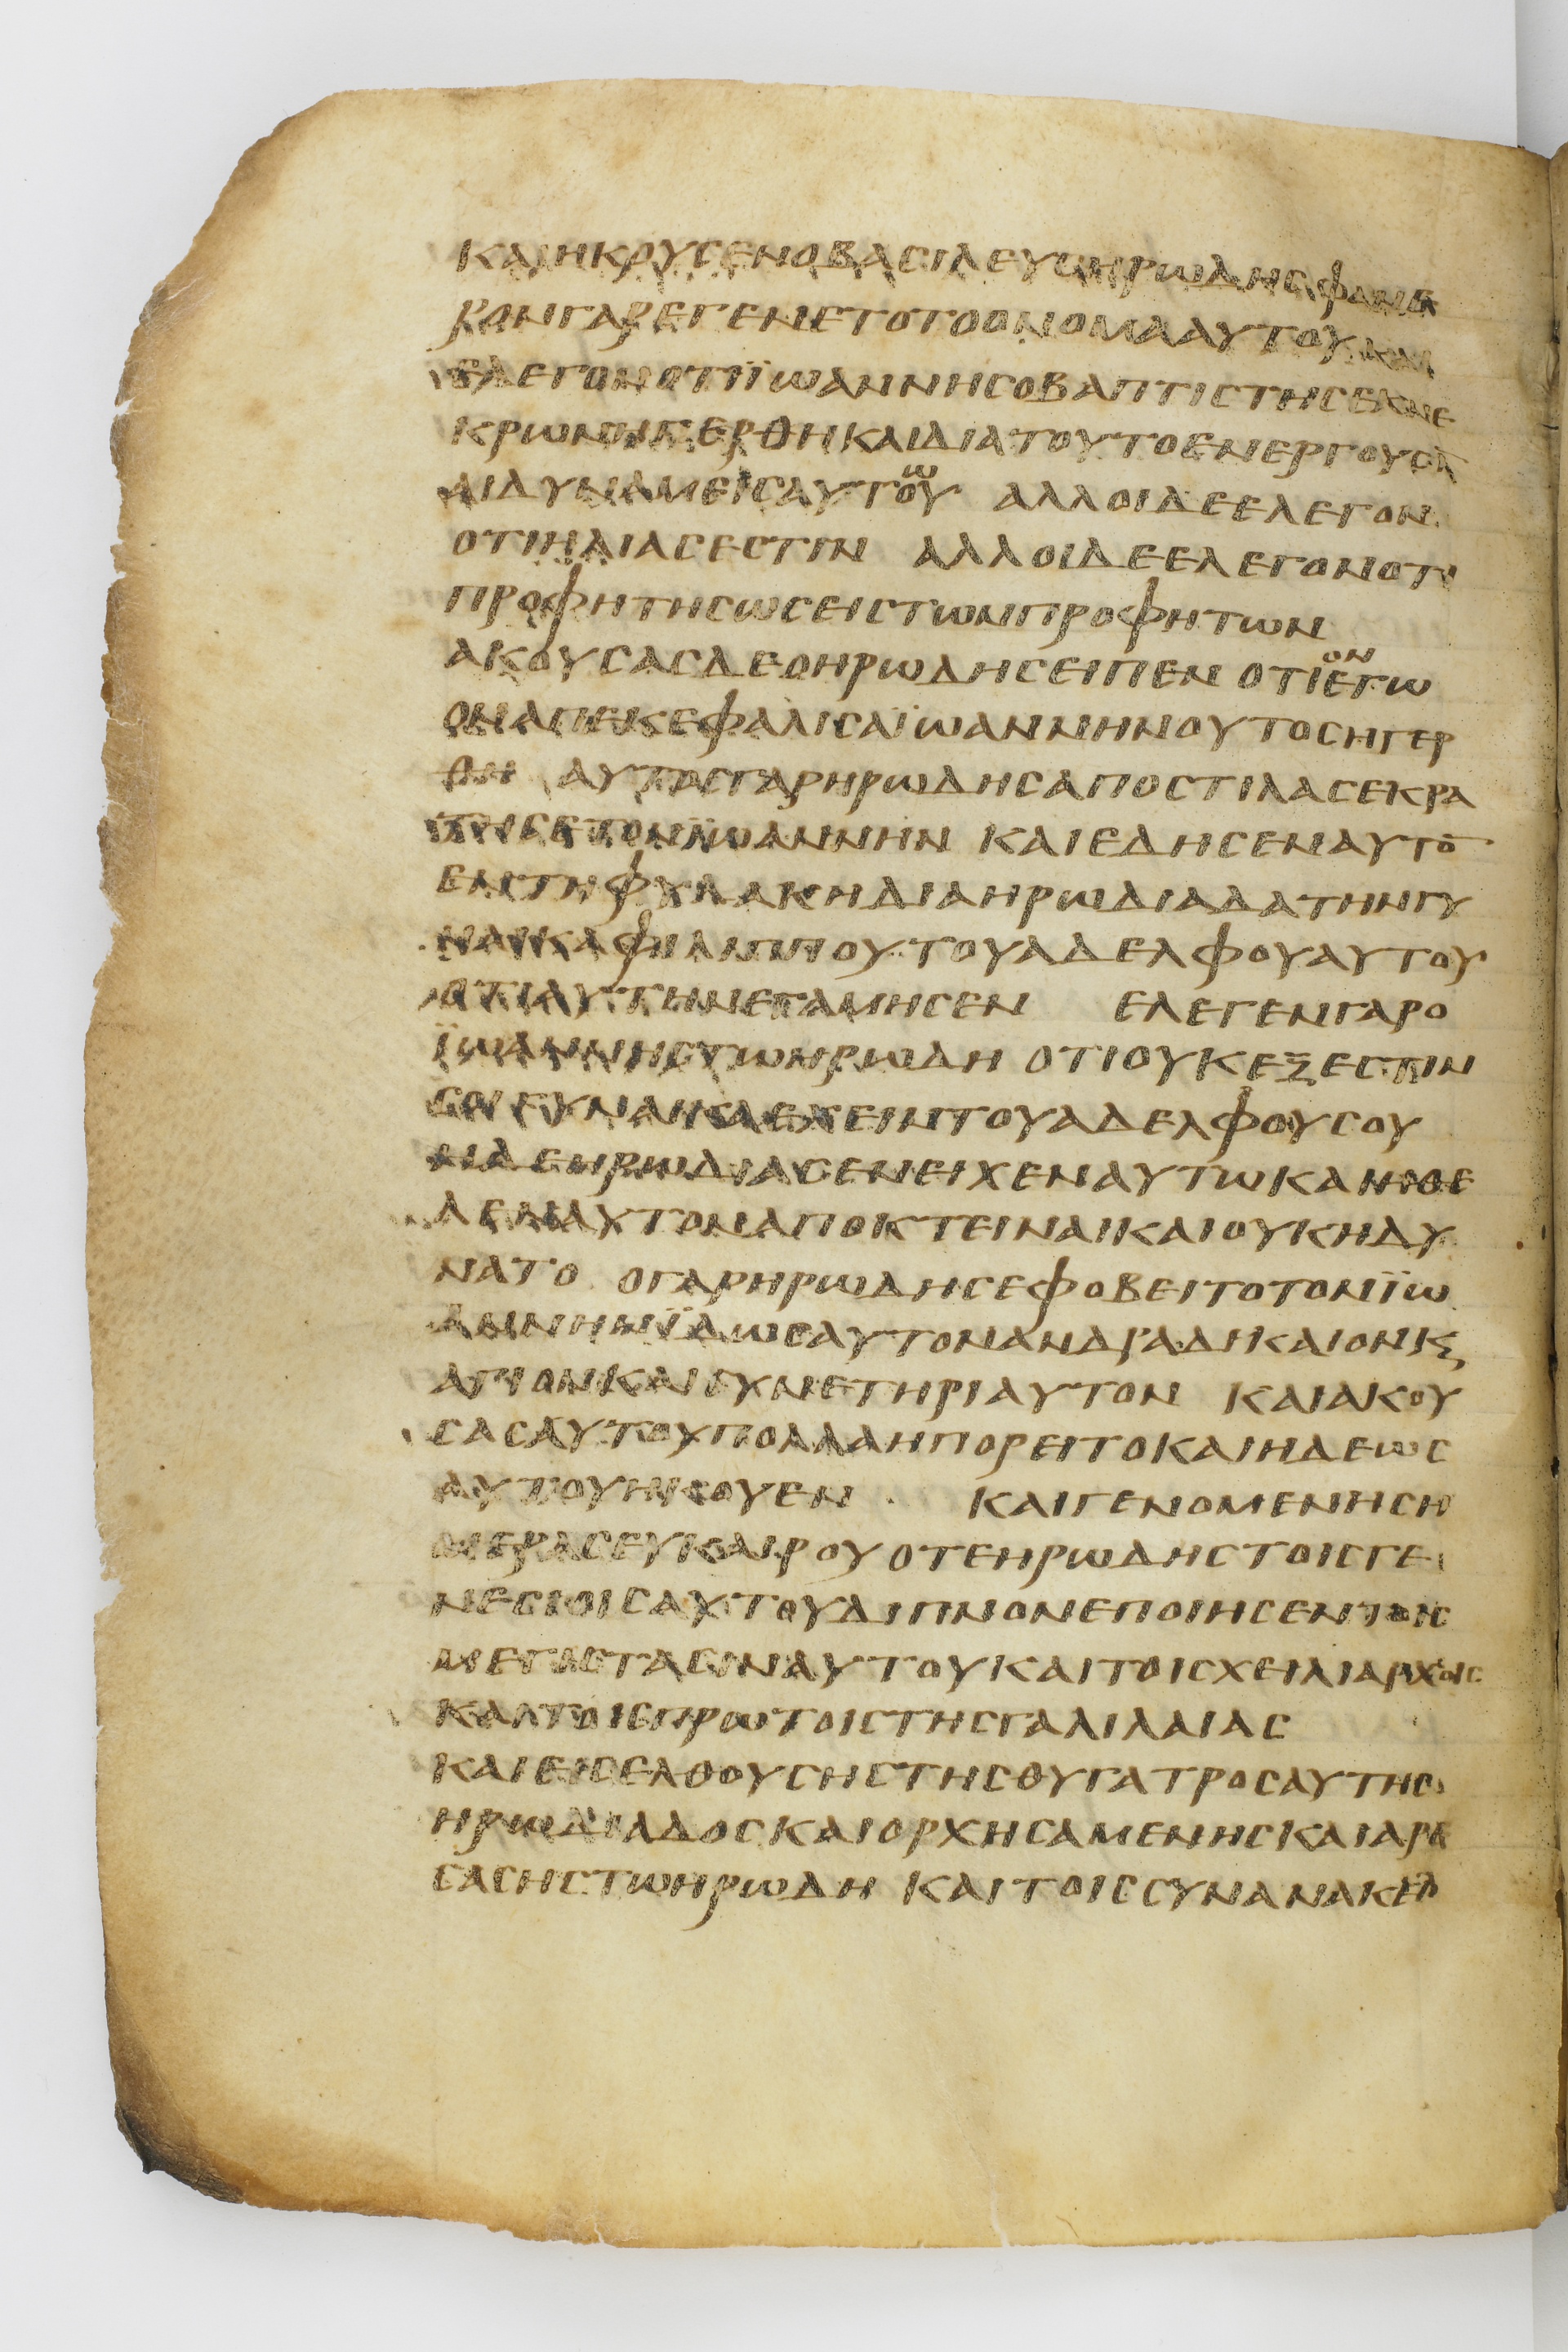 ΚΑΙΗΚΟΥϹΕΝΟΒΑϹΙΛΕΥϹΗΡΩΔΗϹΦΑΝΕ
ΡΟΝΓΑΡΕΓΕΝΕΤΟΤΟΟΝΟΜΑΑΥΤΟΥΚΑΙ
ΕΛΕΓΟΝΟΤΙΪΩΑΝΝΗϹΟΒΑΠΤΙϹΤΗϹΕΚΝΕ
ΚΡΩΝΗΓΕΡΘΗΚΑΙΔΙΑΤΟΥΤΟΕΝΕΡΓΟΥϹΙ
ΑΙΔΥΝΑΜΕΙϹΑΥΤΟΥ ΑΛΛΟΙΔΕΕΛΕΓΟΝ
ΟΤΙΗΛΙΑϹΕϹΤΙΝ ΑΛΛΟΙΔΕΕΛΕΓΟΝΟΤΙ
ΠΡΟΦΗΤΗϹΩϹΕΙϹΤΩΝΠΡΟΦΗΤΩΝ
ΑΚΟΥϹΑϹΔΕΟΗΡΩΔΗϹΕΙΠΕΝ ΟΤΙΟΝΕΓΩ
ΟΝΑΠΕΚΕΦΑΛΙϹΑΪΩΑΝΝΗΝΟΥΤΟϹΗΓΕΡ
ΘΗ ΑΥΤΟϹΓΑΡΗΡΩΔΗϹΑΠΟϹΤΙΛΑϹΕΚΡΑ
ΤΗϹΕΤΟΝΪΩΑΝΝΗΝ ΚΑΙΕΔΗϹΕΝΑΥΤΟ̅
ΕΝΤΗΦΥΛΑΚΗΔΙΑΗΡΩΔΙΑΔΑΤΗΝΓΥ
ΝΑΙΚΑΦΙΛΙΠΠΟΥΤΟΥΑΔΕΛΦΟΥΑΥΤΟΥ
ΟΤΙΑΥΤΗΝΕΓΑΜΗϹΕΝ ΕΛΕΓΕΝΓΑΡΟ
ΪΩΑΝΝΗϹΤΩΗΡΩΔΗ ΟΤΙΟΥΚΕΞΕϹΤΙΝ
ϹΟΙΓΥΝΑΙΚΑΕΧΕΙΝΤΟΥΑΔΕΛΦΟΥϹΟΥ
ΗΔΕΗΡΩΔΙΑϹΕΝΕΙΧΕΝΑΥΤΩΚΑΙΗΘΕ
ΛΕΝΑΥΤΟΝΑΠΟΚΤΕΙΝΑΙΚΑΙΟΥΚΗΔΥ
ΝΑΤΟ ΟΓΑΡΗΡΩΔΗϹΕΦΟΒΕΙΤΟΤΟΝΪΩ
ΑΝΝΗΝΪΔΩϹΑΥΤΟΝΑΝΔΡΑΔΙΚΑΙΟΝΚϚ
ΑΓΙΟΝΚΑΙϹΥΝΕΤΗΡΙΑΥΤΟΝ ΚΑΙΑΚΟΥ
ϹΑϹΑΥΤΟΥΠΟΛΛΑΗΠΟΡΕΙΤΟΚΑΙΗΔΕΩϹ
ΑΥΤΟΥΗΚΟΥΕΝ ΚΑΙΓΕΝΟΜΕΝΗϹΗ
ΜΕΡΑϹΕΥΚΑΙΡΟΥΟΤΕΗΡΩΔΗϹΤΟΙϹΓΕ
ΝΕϹΙΟΙϹΑΥΤΟΥΔΙΠΝΟΝΕΠΟΙΗϹΕΝΤΟΙϹ
ΜΕΓΙϹΤΑϹΙΝΑΥΤΟΥΚΑΙΤΟΙϹΧΕΙΛΙΑΡΧΟΙϹ
ΚΑΙΤΟΙϹΠΡΩΤΟΙϹΤΗϹΓΑΛΙΛΑΙΑϹ
ΚΑΙΕΙϹΕΛΘΟΥϹΗϹΤΗϹΘΥΓΑΤΡΟϹΑΥΤΗϹ
ΗΡΩΔΙΑΔΟϹΚΑΙΟΡΧΗϹΑΜΕΝΗϹΚΑΙΑΡΕ
ϹΑϹΗϹΤΩΗΡΩΔΗ ΚΑΙΤΟΙϹϹΥΝΑΝΑΚΕΙ